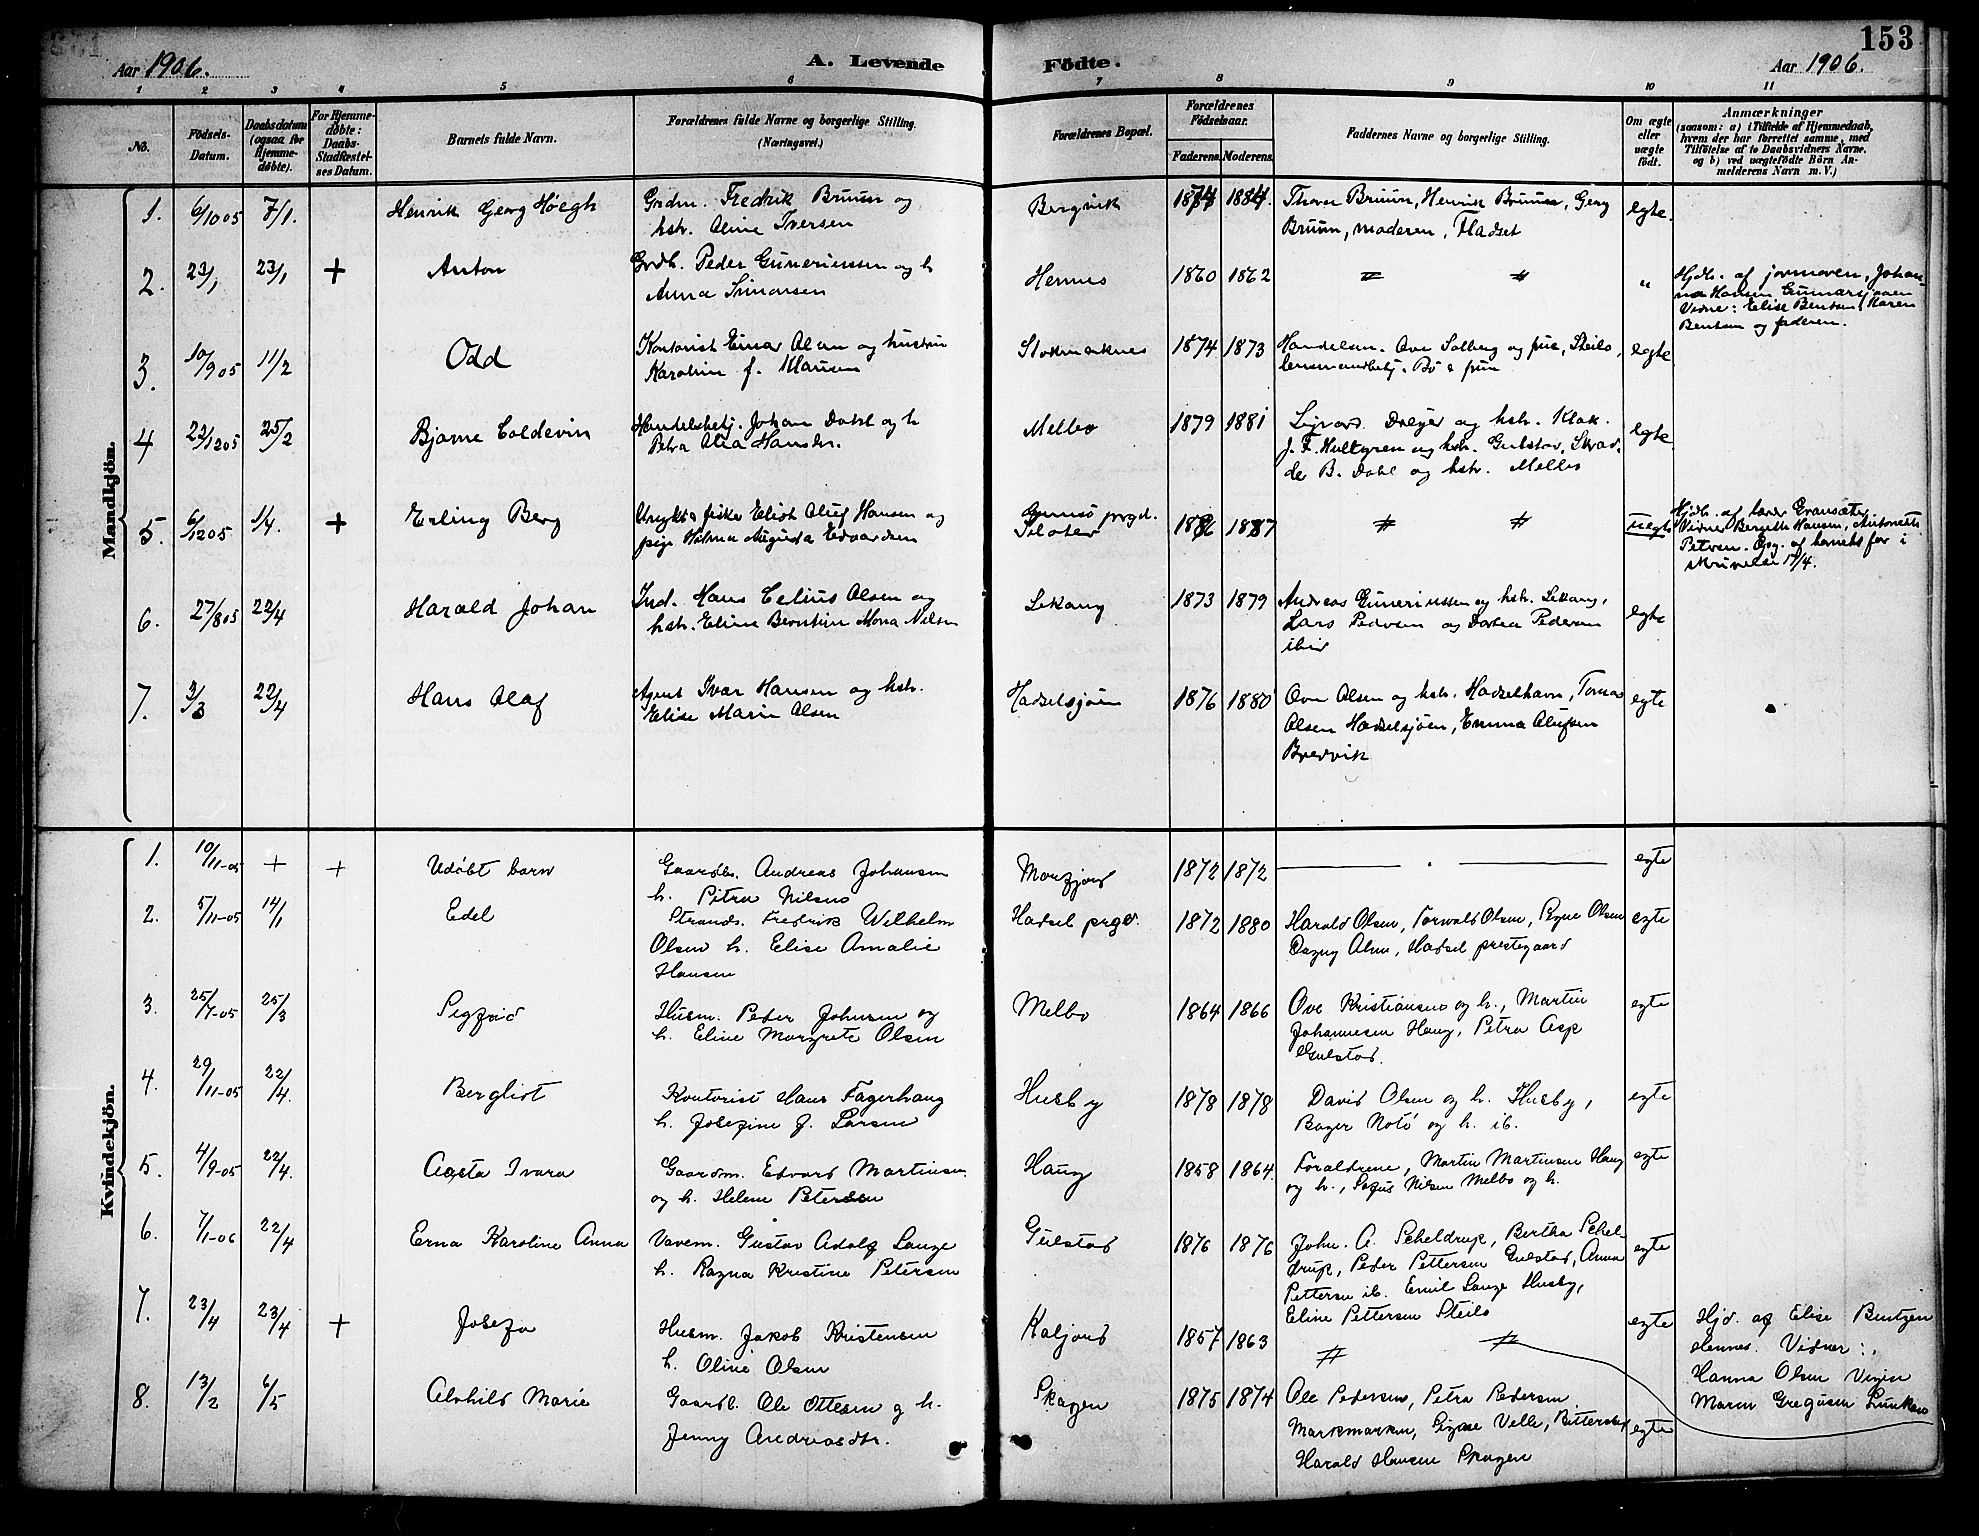 153
Aar 1906.
A. Levende Födte.
Aar 1906.
1 2 3 4 5 6 7 8 9 10 11
No.
Födsels-Datum.
Daabsdatum (ogsaa for Hjemme-døbte).
For Hjemme-døbte: Daabs-Stadfæstel-ses Datum.
Barnets fulde Navn.
Forældrenes fulde Navne og borgerlige Stilling. (Næringsvei.)
Forældrenes Bopæl.
Forældrenes Fødselsaar.
Faderens. Moderens.
Faddernes Navne og borgerlige Stilling.
Om ægte eller uægte født.
Anmærkninger
(saasom: a) i Tilfælde af Hjemmedaab,
hvem der har forrettet samme, med
Tilföielse af to Daabsvidners Navne,
og b) ved uægtefödte Börn An-
melderens Navn m. V.)
Mandkjön.
1. 6/10 05 7/1. Henrik Georg Höegh Grdm. Fredrik Bruun og Bergvik 1874 1884. Thora Bruun, Henrik Bruun, Georg egte.
hstr. Aline Iversen Bruun, moderen, Fladset
2. 23/1 23/1 + Anton Grdb. Peder Guneriussen og h Hennes 1860 1862 " Hjdb. af jormoren, Johan-
Anna Simonsen na Hansen Gunnarsjaaen
Vidne: Elise Bentsen, Karen
Bentsen og faderen.
3. 10/9 05 11/2 Odd Kontorist Einar Olsen og hustru Stokmarknes 1874 1873 Handelsm. Ove Solberg og frue, Steilo, egte
Karoline f. Klausen lensmandbetj. Bö & frue
4 22/12 05 25/2 Bjarne Coldevin Handelsbetj. Johan Dahl og h Melbo 1879 1881 Sigvard Dreyer og hstr. Klak. egte
Petra Olea Hansdr. J. F. Hultgren og hstr. Gulstad, Skred.
de B. Dahl og hstr. Melbo
5. 6/12 05 1/4. + Erling Berg Ungkar fisker Eliot Oluf Hansen og Gimsö prgd. 1887 uegte Hjdb. af lærer Gransæter
pige Hilma Augusta Edvardsen Vidner Bergitte Hansen, Antonette
Petersen. Opg. af barnets far i
skrivelse 17/4.
6. 27/8 05 22/4 Harald Johan Ind. Hans Celius Olsen og Lekang 1873 1879 Andreas Guneriussen og hstr. Lekang, egte
hstr. Eline Berntine Mona Nilsen Lars Pedersen og Dortea Pedersen
ibid
7. 3/3 22/4 Hans Olaf Agent Ivar Hansen og hstr. Hadselsjöen 1876 1880 Ove Olsen og hstr. Hadselhavn, Tomas egte
Elise Marie Olsen Olsen Hadselsjöen, Emma Olufsen
Bredvik
Kvindekjön.
1. 10/11-05 + + Udöbt barn Gaardbr. Andreas Johansen Morfjord 1872 1872 egte
h. Petra Nilsen
2. 5/11-05 14/1 Edel Strands. Fredrik Wilhelm Hadsel prgd. 1872 1880 Harald Olsen, Torvald Olsen, Signe Olsen egte
Olsen h. Elise Amalie Dagny Olsen, Hadsel prestegaard
Hansen
3. 25/7-05 25/3 Sigfrid Husm. Peder Johnsen og Melbo 1864 1866 Ove Kristiansen og h., Martin egte
h. Eline Margrete Olsen Johannesen Haug, Petra Asp
Gulstad.
4. 29/11-05 22/4. Bergliot Kontorist Hans Fagerhaug Husby 1878 1878 David Olsen og h. Husby, egte
h. Josefine f. Larsen Bager Notö og h. ib.
5. 4/9-05 22/4. Aasta Ivara Gaardm. Edvard Martinsen Haug 1858 1864. Foraldrene, Martin Martinsen Haug egte
og h. Helene Petersen og h., Sofus Nilsen Melbo og h.
6. 7/1-06 22/4 Erna Karoline Anna Varem. Gustav Adolf Lange Gulstad 1876 1876 John. A. Scheldrup, Bertha Schel- egte
h. Ragna Kristine Petersen drup, Peder Pettersen Gulstad, Anna
Pettersen ib. Emil Lange Husby,
Eline Pettersen Steilo
7. 23/4 23/4 + Josefa Husm. Jakob Kristensen Kaljord 1857 1863 egte Hjd. af Elise Bentzen
h. Oline Olsen Hennes. Vidner:
Hanna Olsen
Maren Gregusen
8. 13/2 6/5 Alvhild Marie Gaardb. Ole Ottesen og h. Skagen 1875 1874 Ole Pedersen, Petra Pedersen egte
Jenny Andreasdtr. Markmarken, Signe Velle, Bitterstad
Harald Hansen Skagen